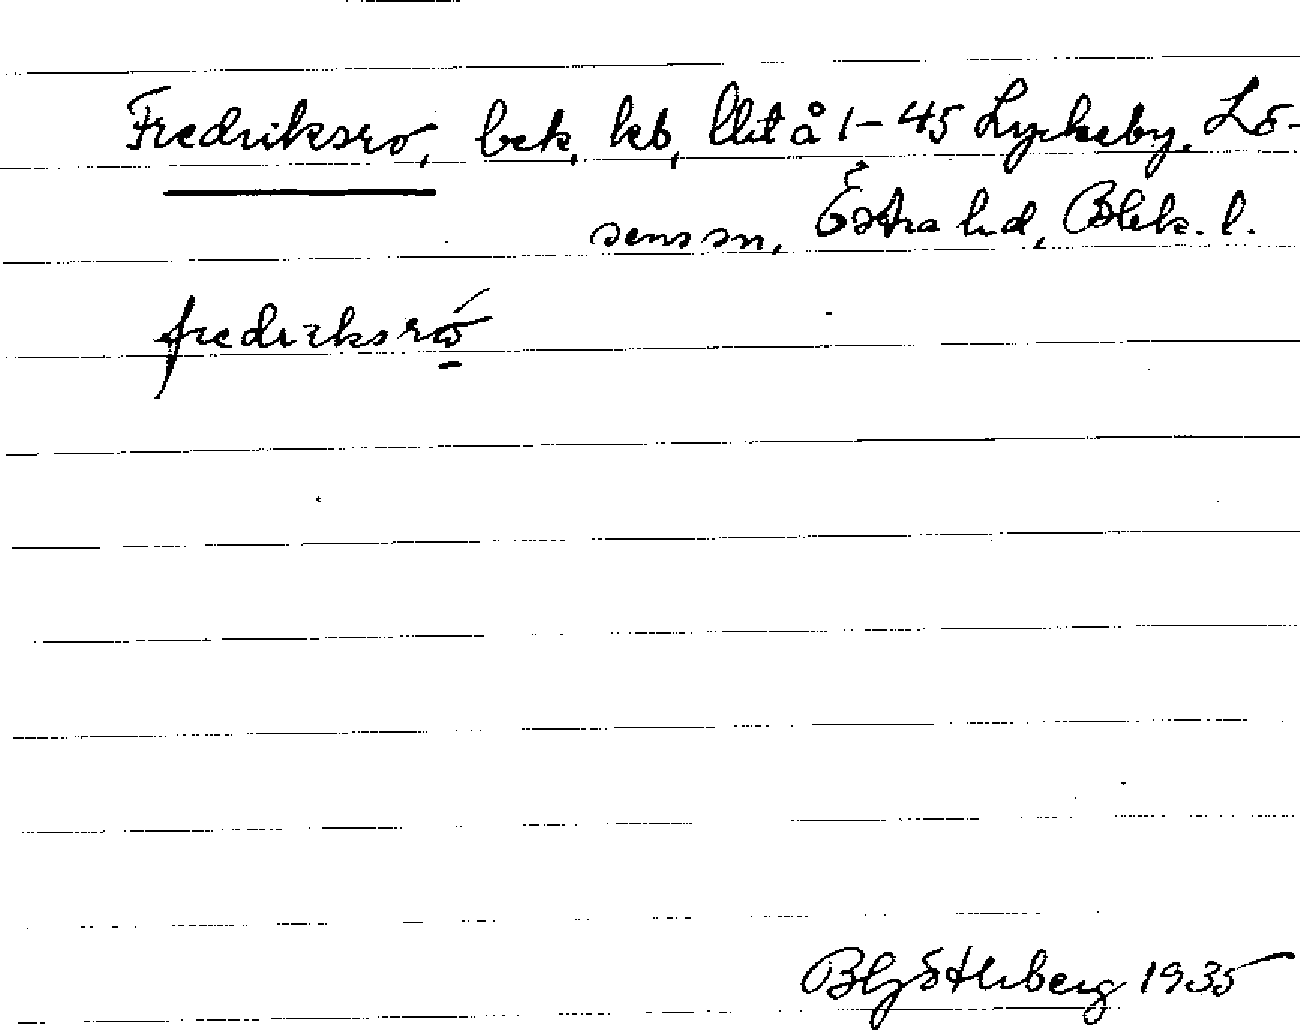 Fredriksro, bek, kb, llit å 1-45 Lyckeby. Lö-
sens sn, Östra hd, Blek. l.
fredriksró
BGöthberg 1935